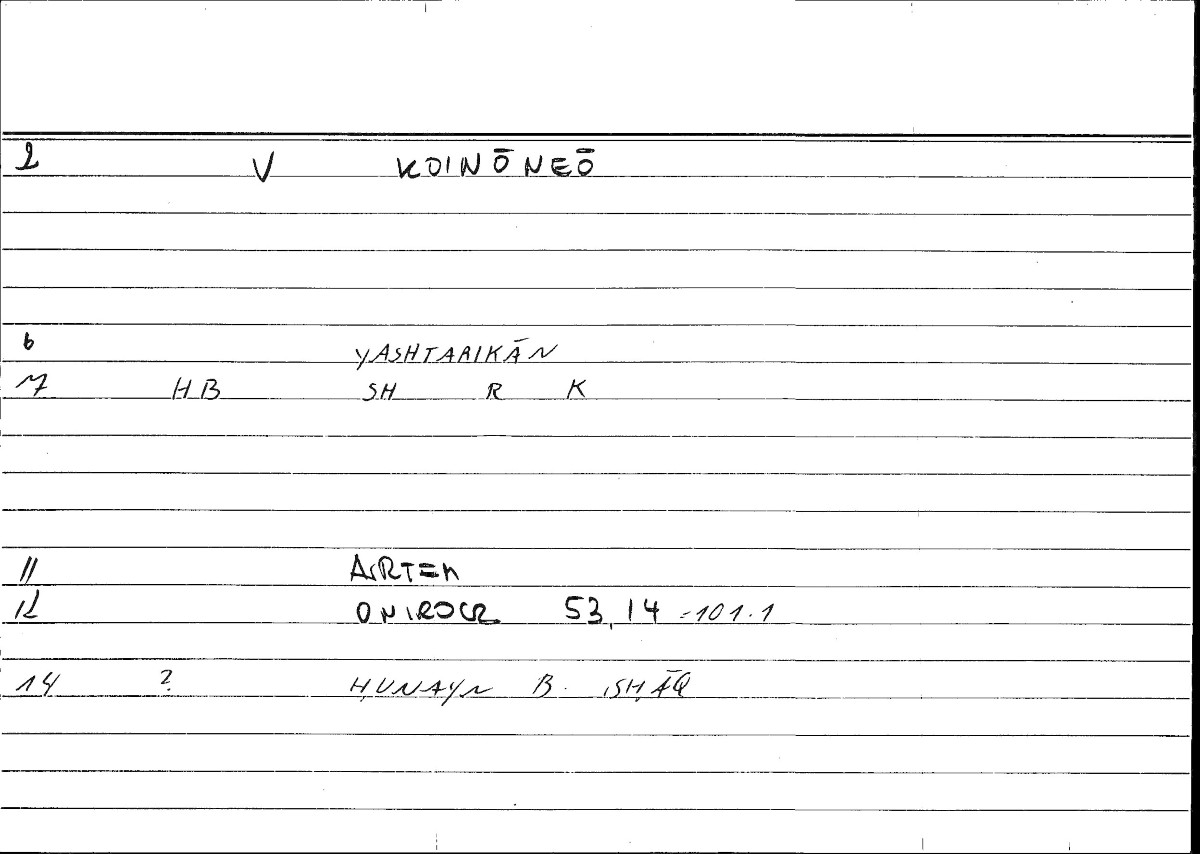 2 V KOINŌNEŌ
6 YASHTARIKĀN
7 HB SH R K
11 ARTEM
12 ONIROCR 53,14 =101.1
14 ? ḤUNAYN B. ISḤĀQ